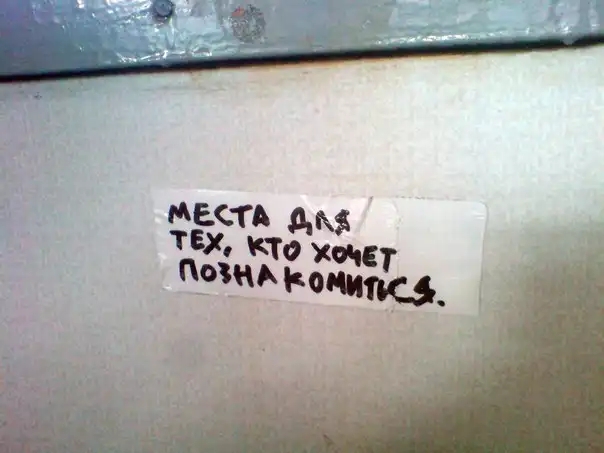 МЕСТА ДЛЯ
ТЕХ, КТО ХОЧЕТ
ПОЗНАКОМИТЬСЯ.